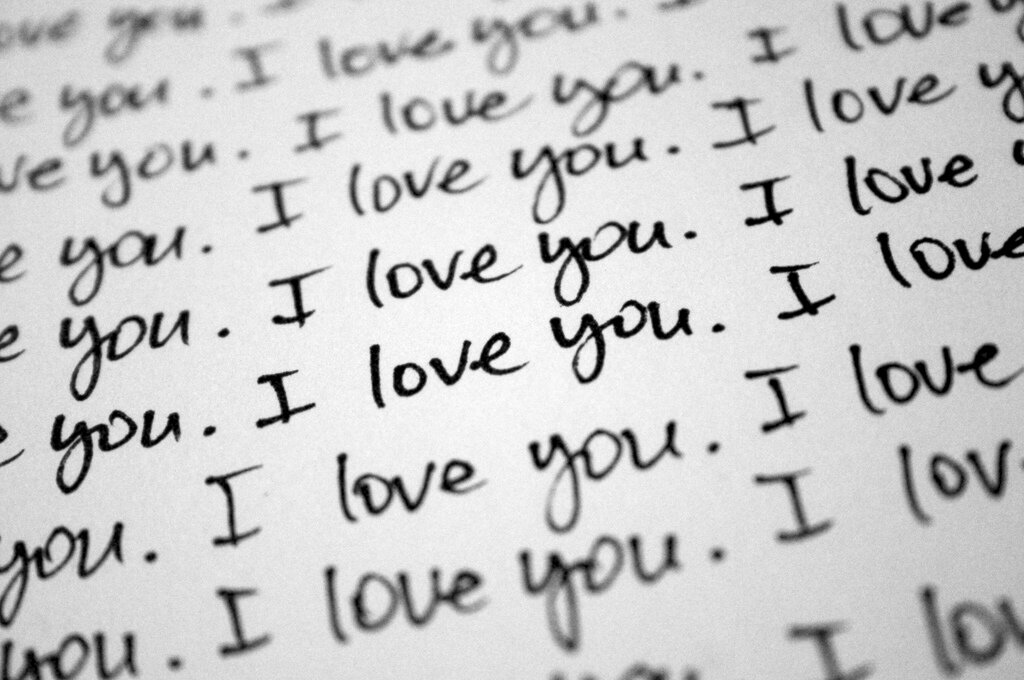 ove you . I
e you . I love you. I
ve you . I love you. I love y
e you. I love you. I love y
e you . I love you. I love y
e you. I love you . I love
you. I love you . I love
you . I love you . I lov
you I lov